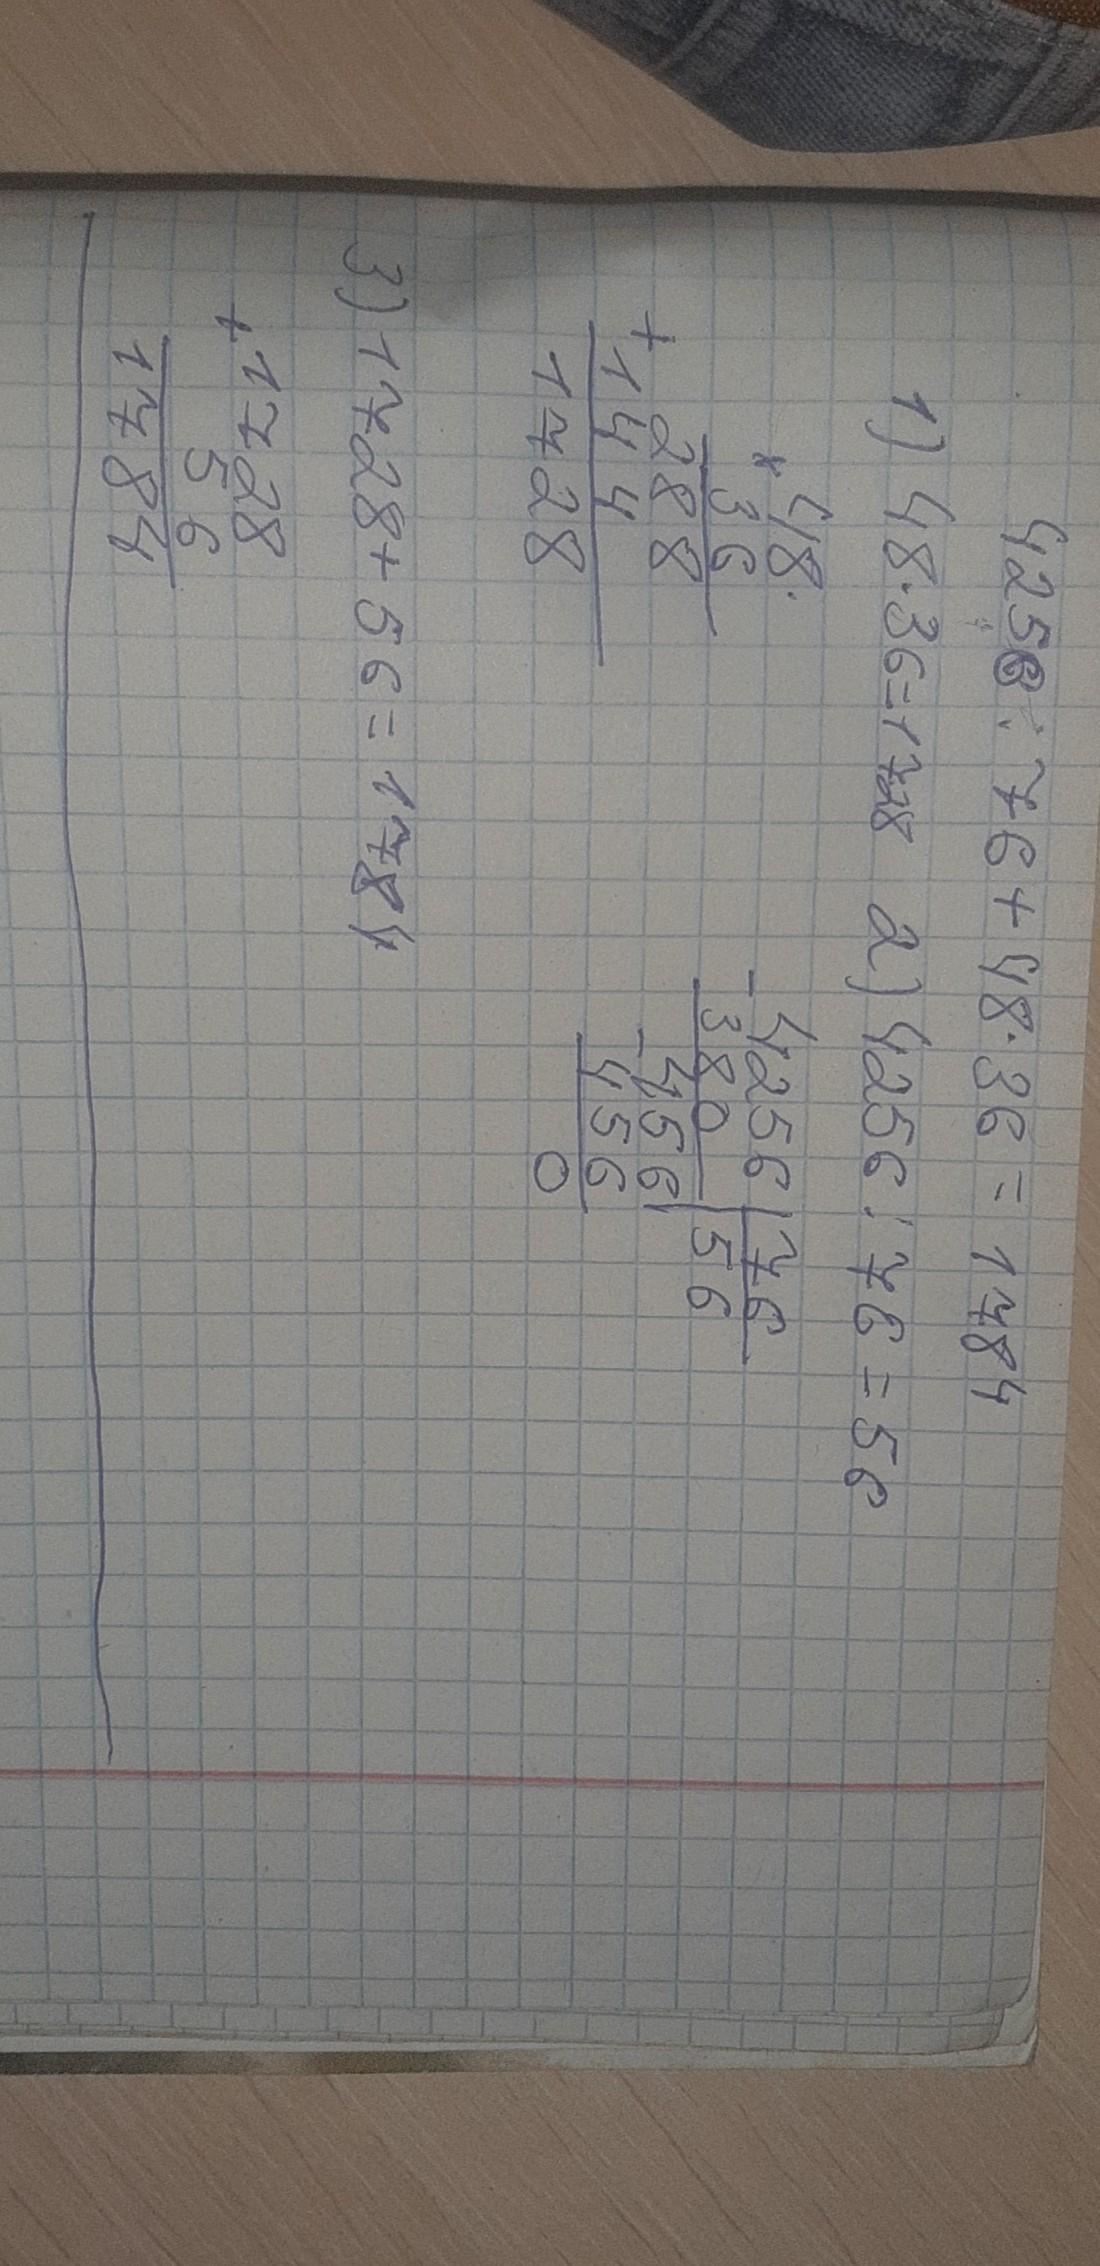 4256:76+48·36=1784
1) 48·36=1728 2) 4256:76=56
×48·
36
288
+144
1728
-4256|76
380 |56
-456
456
0
3) 1728+56=1784
+1728
56
1784